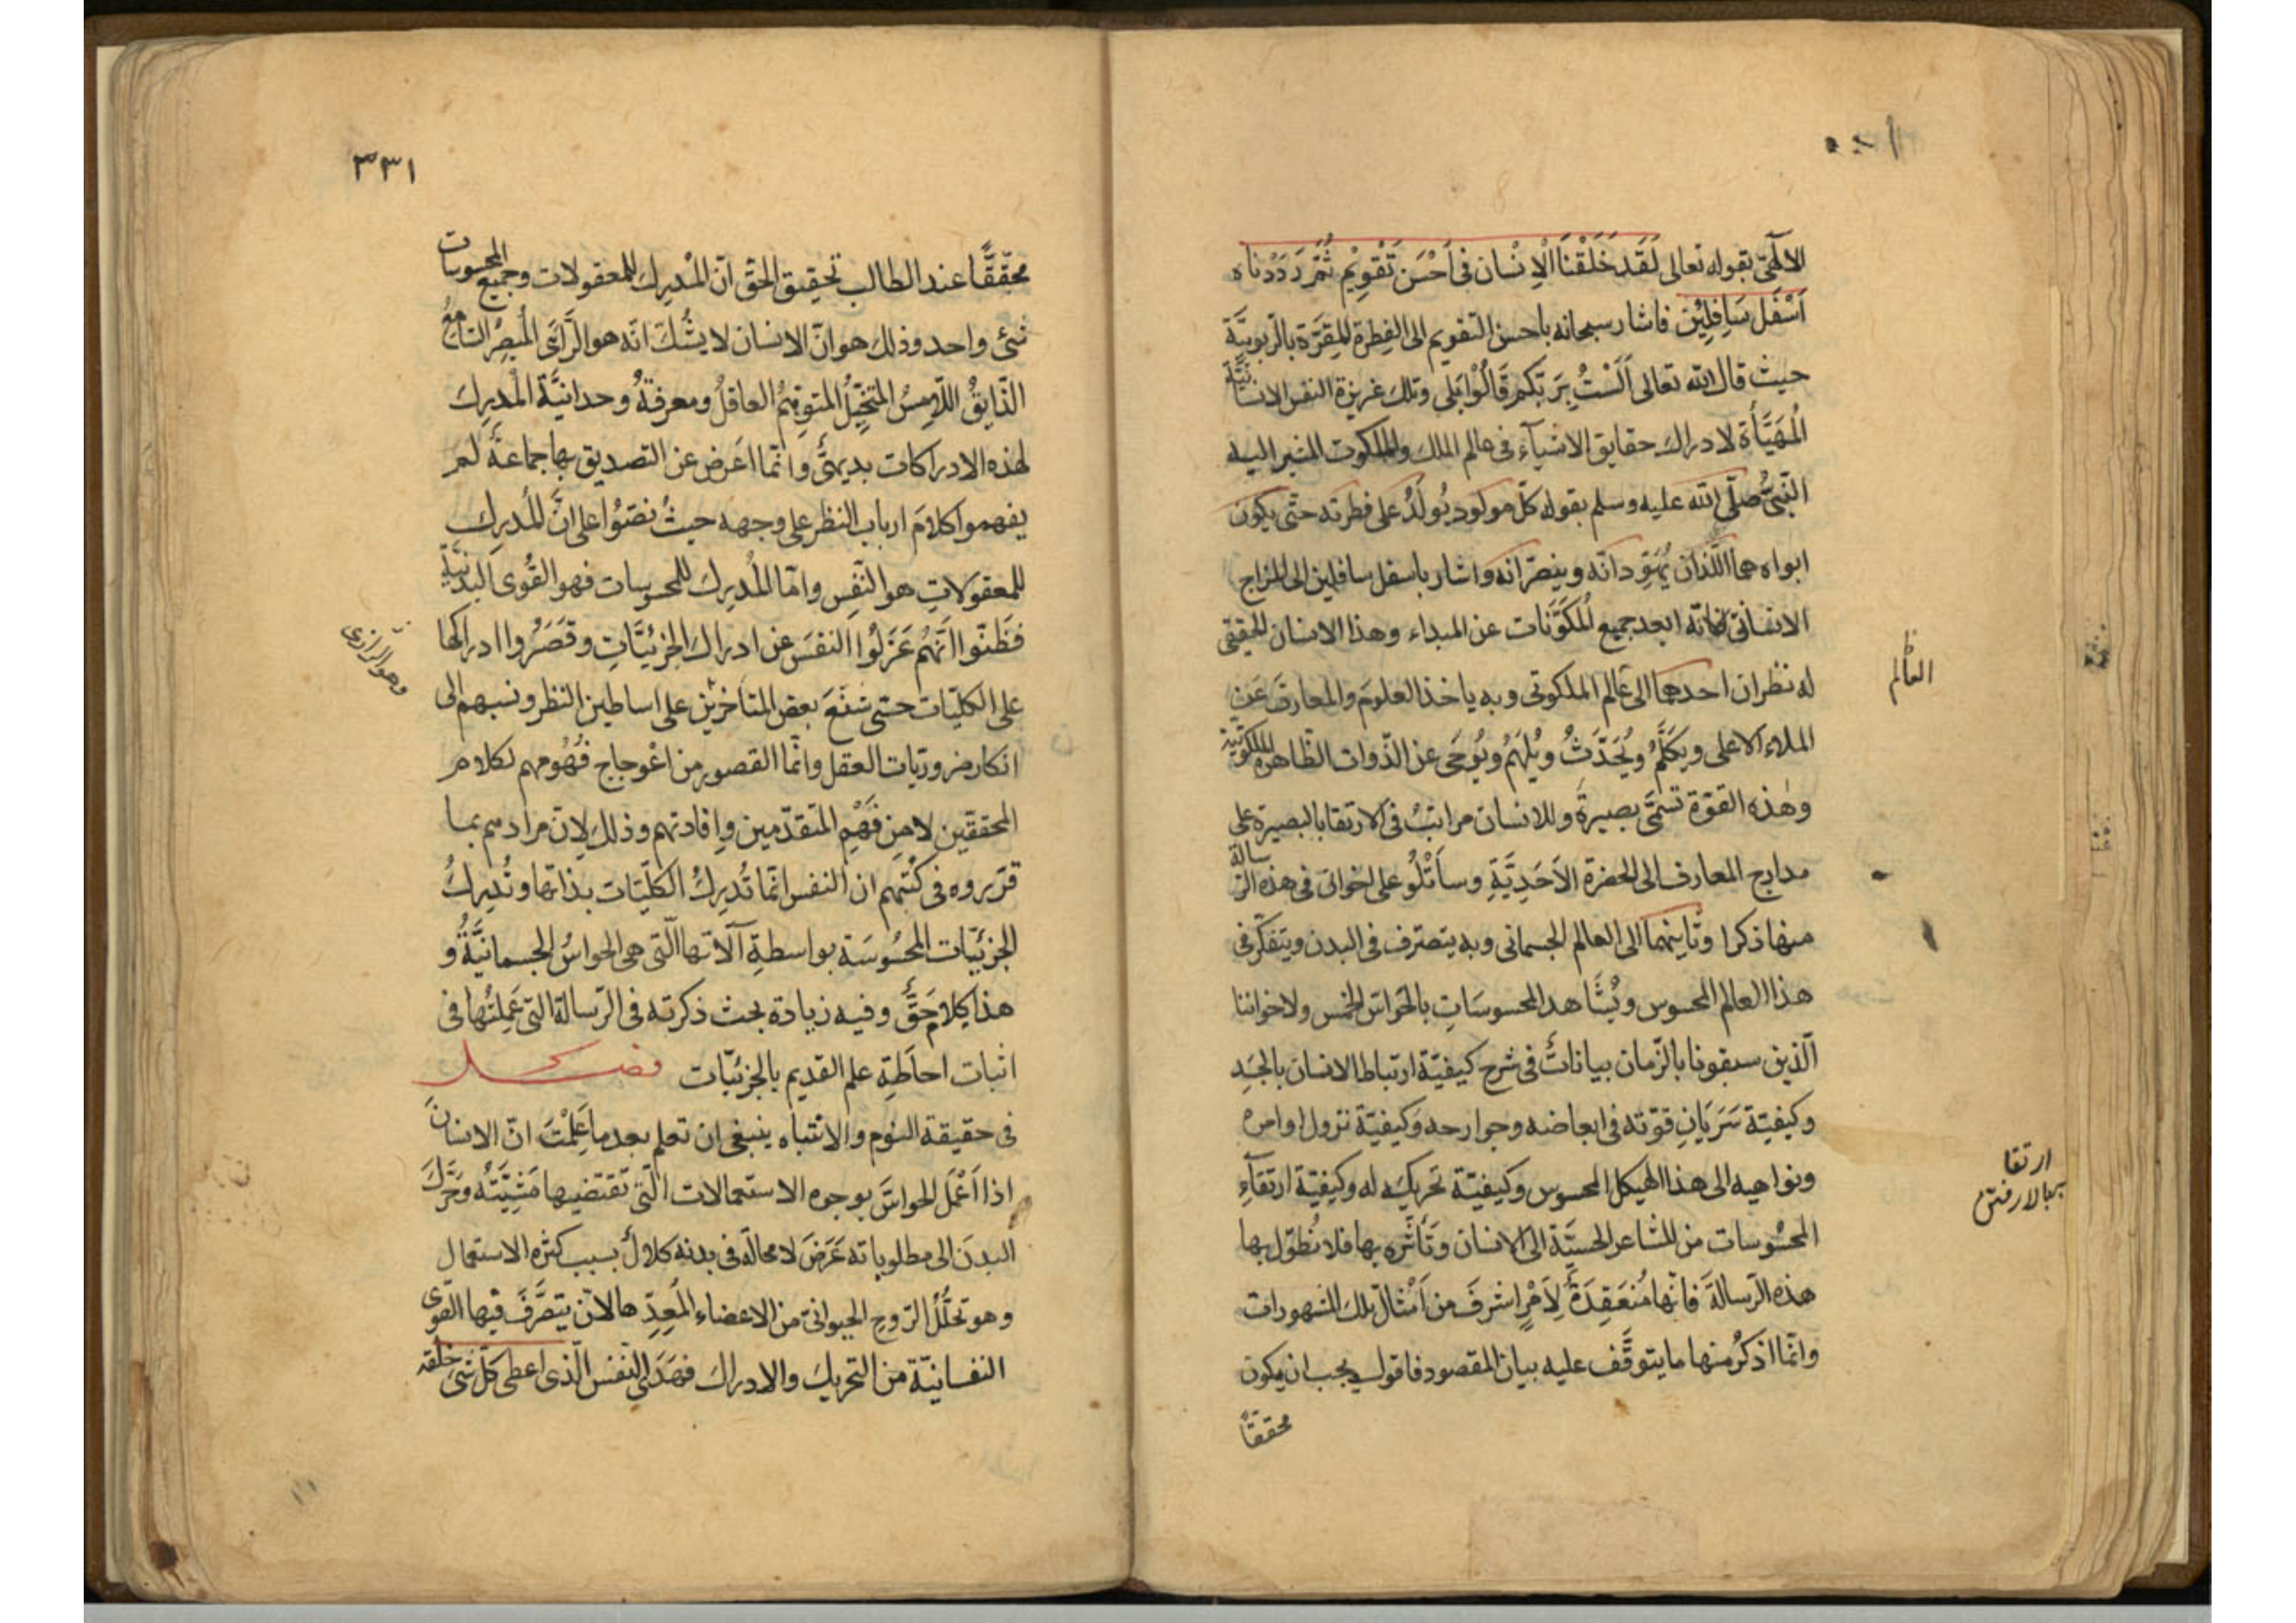 الالٓهىّ بقوله تعالى لَقَد خَلَقْنَا الْاِنْسَان فى اَحْسَن تَقْوِيْم ثُمَّ رَدَدْناه
اَسْفَل سَافِلِيْن فاشار سبحانه باحسن التقويم الى الفِطرة المُقِرَّة بالرّبوبيَّة
حيث قال الله تعالى اَلَسْتُ بِرَبّكم قَالُوْا بَلٰى وتلك غريزة النفس الانسانيَّة
الْمُهَيَّأَة لادراك حقايق الاشيآء فى عالم الملك والملكوت المشير اليه
النّبىُّ صلّى الله عليه وسلم بقوله كلّ مولود يُولَدُ على فطرته حتّى يكون
ابواه هما اللّذان يُهَوِّدانّه وينصّرانه واشار باسفل سافلين الى المزاج
الانسانىّ فانّه ابعد جميع المُكَوَّنَات عن المبداء وهذا الانسان الحقيقى
له نظران احدهما الى عالم الملكوتى وبه ياخذ العلومَ والمعارفَ عَن
العالم
الملاء الاعلى ويكَلَّمُ ويُحَدَّثُ ويُلهَمُ ويُوحَى عن الذّوات الطّاهرة الملكوتيّة
وهٰذه القوّة تسَمّى بصيرةً وللانسان مراتبُ فى الارتقا بالبصيرة على
مدارج المعارف الى الحضرة الاَحَدِيَّةِ وسأَتْلُو على اخوانى فى هذه الرّسالة
منها ذكرا وثانيهما الى العالم الجسمانى وبه يتصرّف فى البدن ويتفكّر فى
هذا العالم المحسوس ويُشَاهد المحسوسَاتِ بالحوَاسّ الخمس ولاخواننا
الّذين سبقونا بالزّمان بياناتٌ فى شرح كيفيّة ارتباط الانسان بالجسَدِ
وكيفيّة سَرَيَانِ قوّته فى ابعاضه وجوارحه وَكيفيّة نزول اوامره
ونواهيه الى هذا الهيكل المحسوس وكيفيّة تحريكه له وكيفيّة ارتقآءِ
ارتقا
ببالارفتن
المحسُوسات من المشاعر الحسيَّة الى الانسان وَتَأَثّره بها فلا نُطَوِّل بها
هذه الرّسالة فانّها مُنعَقِدَةٌ لِاَمْرٍ اشرفَ من اَمْثال تلك المشهورات
وانّما اذكُرُ منها ما يتوقّف عليه بيان المقصود فاقول يجب ان يكون
محققًا
٣٣١
محَقّقًا عند الطالب تحقيق الحقّ انّ المُدْرِكَ للمعقولات وجميع المحسوسات
شئ واحد وذلك هو انّ الانسان لا يشُكّ انّه هو الرَّائىَ المُبصِرُ السّامعُ
الذّايقُ اللّامِسُ المتخَيِّلُ المتوهّمُ العاقلُ ومعرفةُ وحدانيَّة المُدْرِك
لهذه الادراكات بديهىٌّ وانّما اعَرض عن التصديق بها جماعَةٌ لم
يفهموا كلامَ ارباب النظر على وجهه حيثُ نصّوا على انّ المُدرِك
للمعقولاتِ هو النّفس وامّا المُدرِكَ للمحسوسات فهو القُوى البدنيّة
فظنّوا انّهُم عَزَلُوا النفسَ عن ادراك الجزئيّاتِ وقَصَرُوا ادراكها
وهو الرازى
على الكليّات حتىّ شنّعَ بعض المتاخرين على اساطين النظر ونسبهم الى
انكار ضروريّات العقل وانّما القصور من اعْوجاج فُهُومهم لكلام
المحققين لا مِن فَهْم المتقدّمين وافادتهم وذلك لانّ مرادهم بما
قرّروه فى كُتُبهم ان النفس انّما تُدرِكُ الكلّيّات بذاتها وتُدرِكُ
الجزئيّات المحسُوسَة بواسطةِ آلاتها الّتى هى الحواسُّ الجسمانيَّةُ و
هذا كلام حَقٌّ وفيه زيادة بحث ذكرته فى الرّسالة التى عَمِلتُها فى
اثبات احاطَةِ علم القديم بالجزئيّات فصل
فى حقيقة النوم والانتباه ينبغى ان تعلم بعد ما عَلِمْتَ انّ الانسان
اذا اَعْمَلَ الحواسَّ بوجوه الاستعمالات الّتى تقتضيها مَشِيَّتُه وَحَرَّكَ
البدنَ الى مطلوباته عَرَضَ لا محالَة فى بدنه كلالٌ بسبب كثرة الاستعمال
وهو تحلُّلُ الرّوح الحيوانىّ من الاعضاء المُعِدِّها لان يتصَرَّفَ فيها القوى
النفسانيّة من التحريك والادراك فهَدَى النفس الّذى اعطى كلّ شئ خلقه